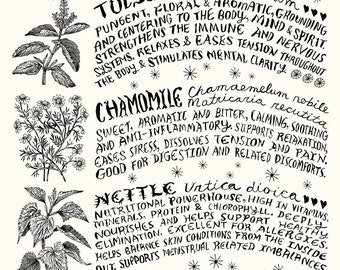 TULSI
PUNGENT, FLORAL & AROMATIC. GROUNDING
AND CENTERING TO THE BODY, MIND & SPIRIT.
STRENGTHENS THE IMMUNE AND NERVOUS
SYSTEMS, RELAXES & EASES TENSION THROUGHOUT
THE BODY & STIMULATES MENTAL CLARITY.
CHAMOMILE Chamaemelum nobile
Matricaria recutita
SWEET, AROMATIC AND BITTER, CALMING, SOOTHING
AND ANTI-INFLAMMATORY. SUPPORTS RELAXATION,
EASES STRESS, DISSOLVES TENSION AND PAIN.
GOOD FOR DIGESTION AND RELATED DISCOMFORTS.
NETTLE Urtica dioica
NUTRITIONAL POWERHOUSE, HIGH IN VITAMINS,
MINERALS, PROTEIN & CHLOROPHYLL. DEEPLY
NOURISHES AND HELPS SUPPORT HEALTHY
ELIMINATION. EXCELLENT FOR ALLERGIES.
HELPS BALANCE SKIN CONDITIONS FROM THE INSIDE
OUT, SUPPORTS MENSTRUAL RELATED IMBALANCES